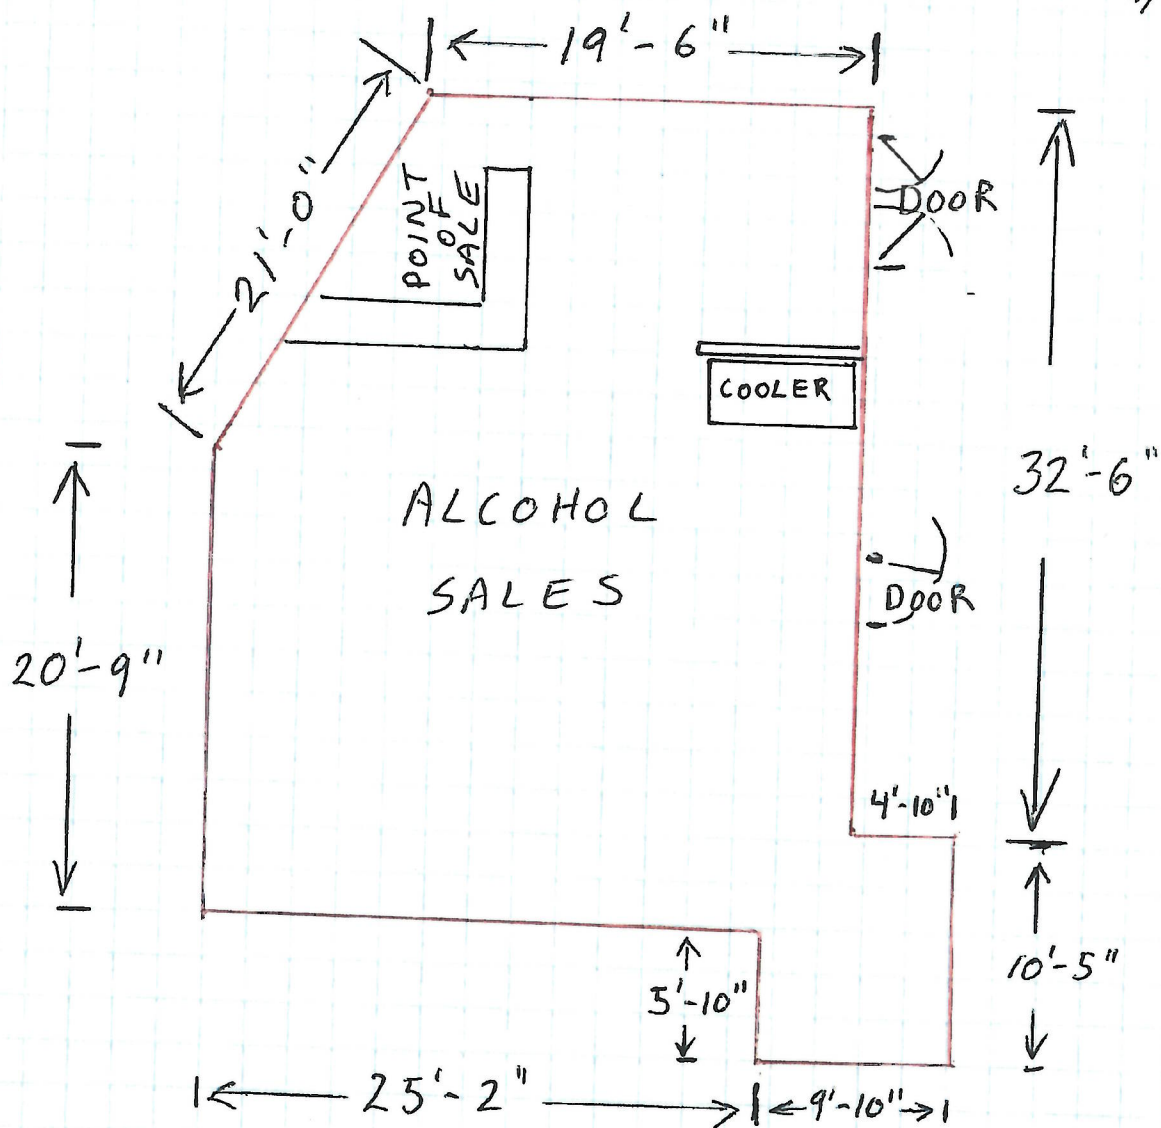 19'-6"
21'-0"
POINT
OF
SALE
DOOR
COOLER
32'-6"
ALCOHOL
SALES
DOOR
20'-9"
4'-10"
10'-5"
5'-10"
25'-2"
9'-10"